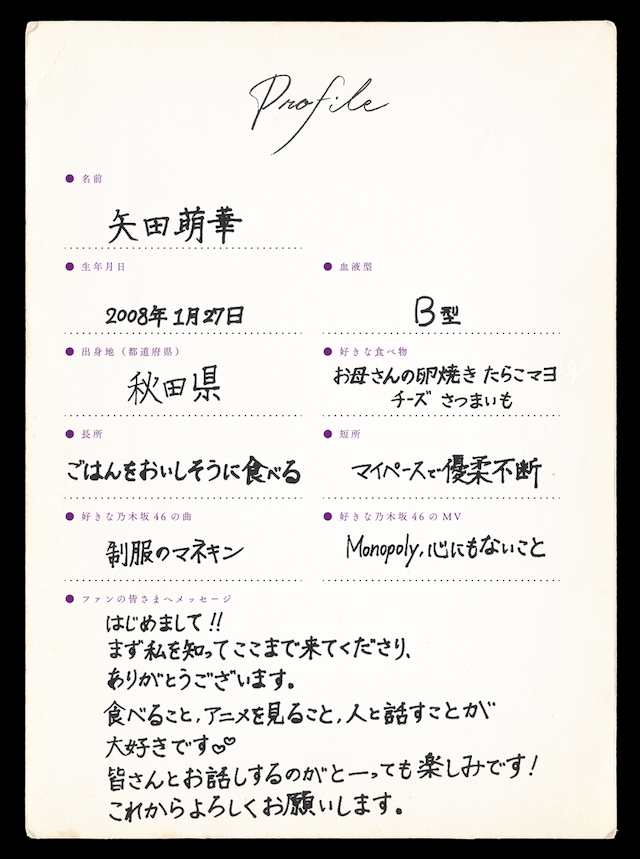 Profile
名前
矢田萌華
生年月日
2008年1月27日
血液型
B型
出身地（都道府県）
秋田県
好きな食べ物
お母さんの卵焼き たらこマヨ
チーズ さつまいも
長所
ごはんをおいしそうに食べる
短所
マイペースで優柔不断
好きな乃木坂46の曲
制服のマネキン
好きな乃木坂46のMV
Monopoly, 心にもないこと
ファンの皆さまへメッセージ
はじめまして!!
まず私を知ってここまで来てくださり、
ありがとうございます。
食べること, アニメを見ること, 人と話すことが
大好きです♡♡
皆さんとお話しするのがとーっても楽しみです!
これからよろしくお願いします。